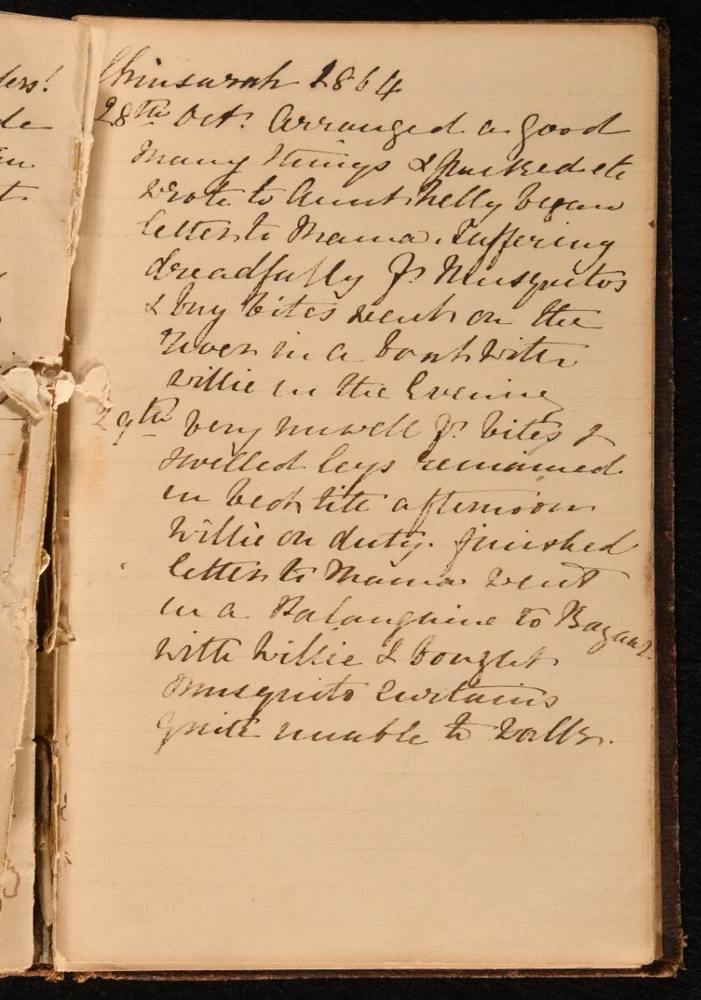 ders!
de
Chinsurah 1864
28th Oct. Arranged a good
many things & packed etc
wrote to Aunt Nelly began
letter to Mama. Suffering
dreadfully fr. Musquitos
& bug bites went on the
river in a boat with
Willie in the Evening
29th very unwell fr. bites &
swelled legs remained
in bed till afternoon
Willie on duty. finished
letter to Mama went
in a Palanquine to Bazaar
with Willie & bought
Musquito curtains
quite unable to walk.